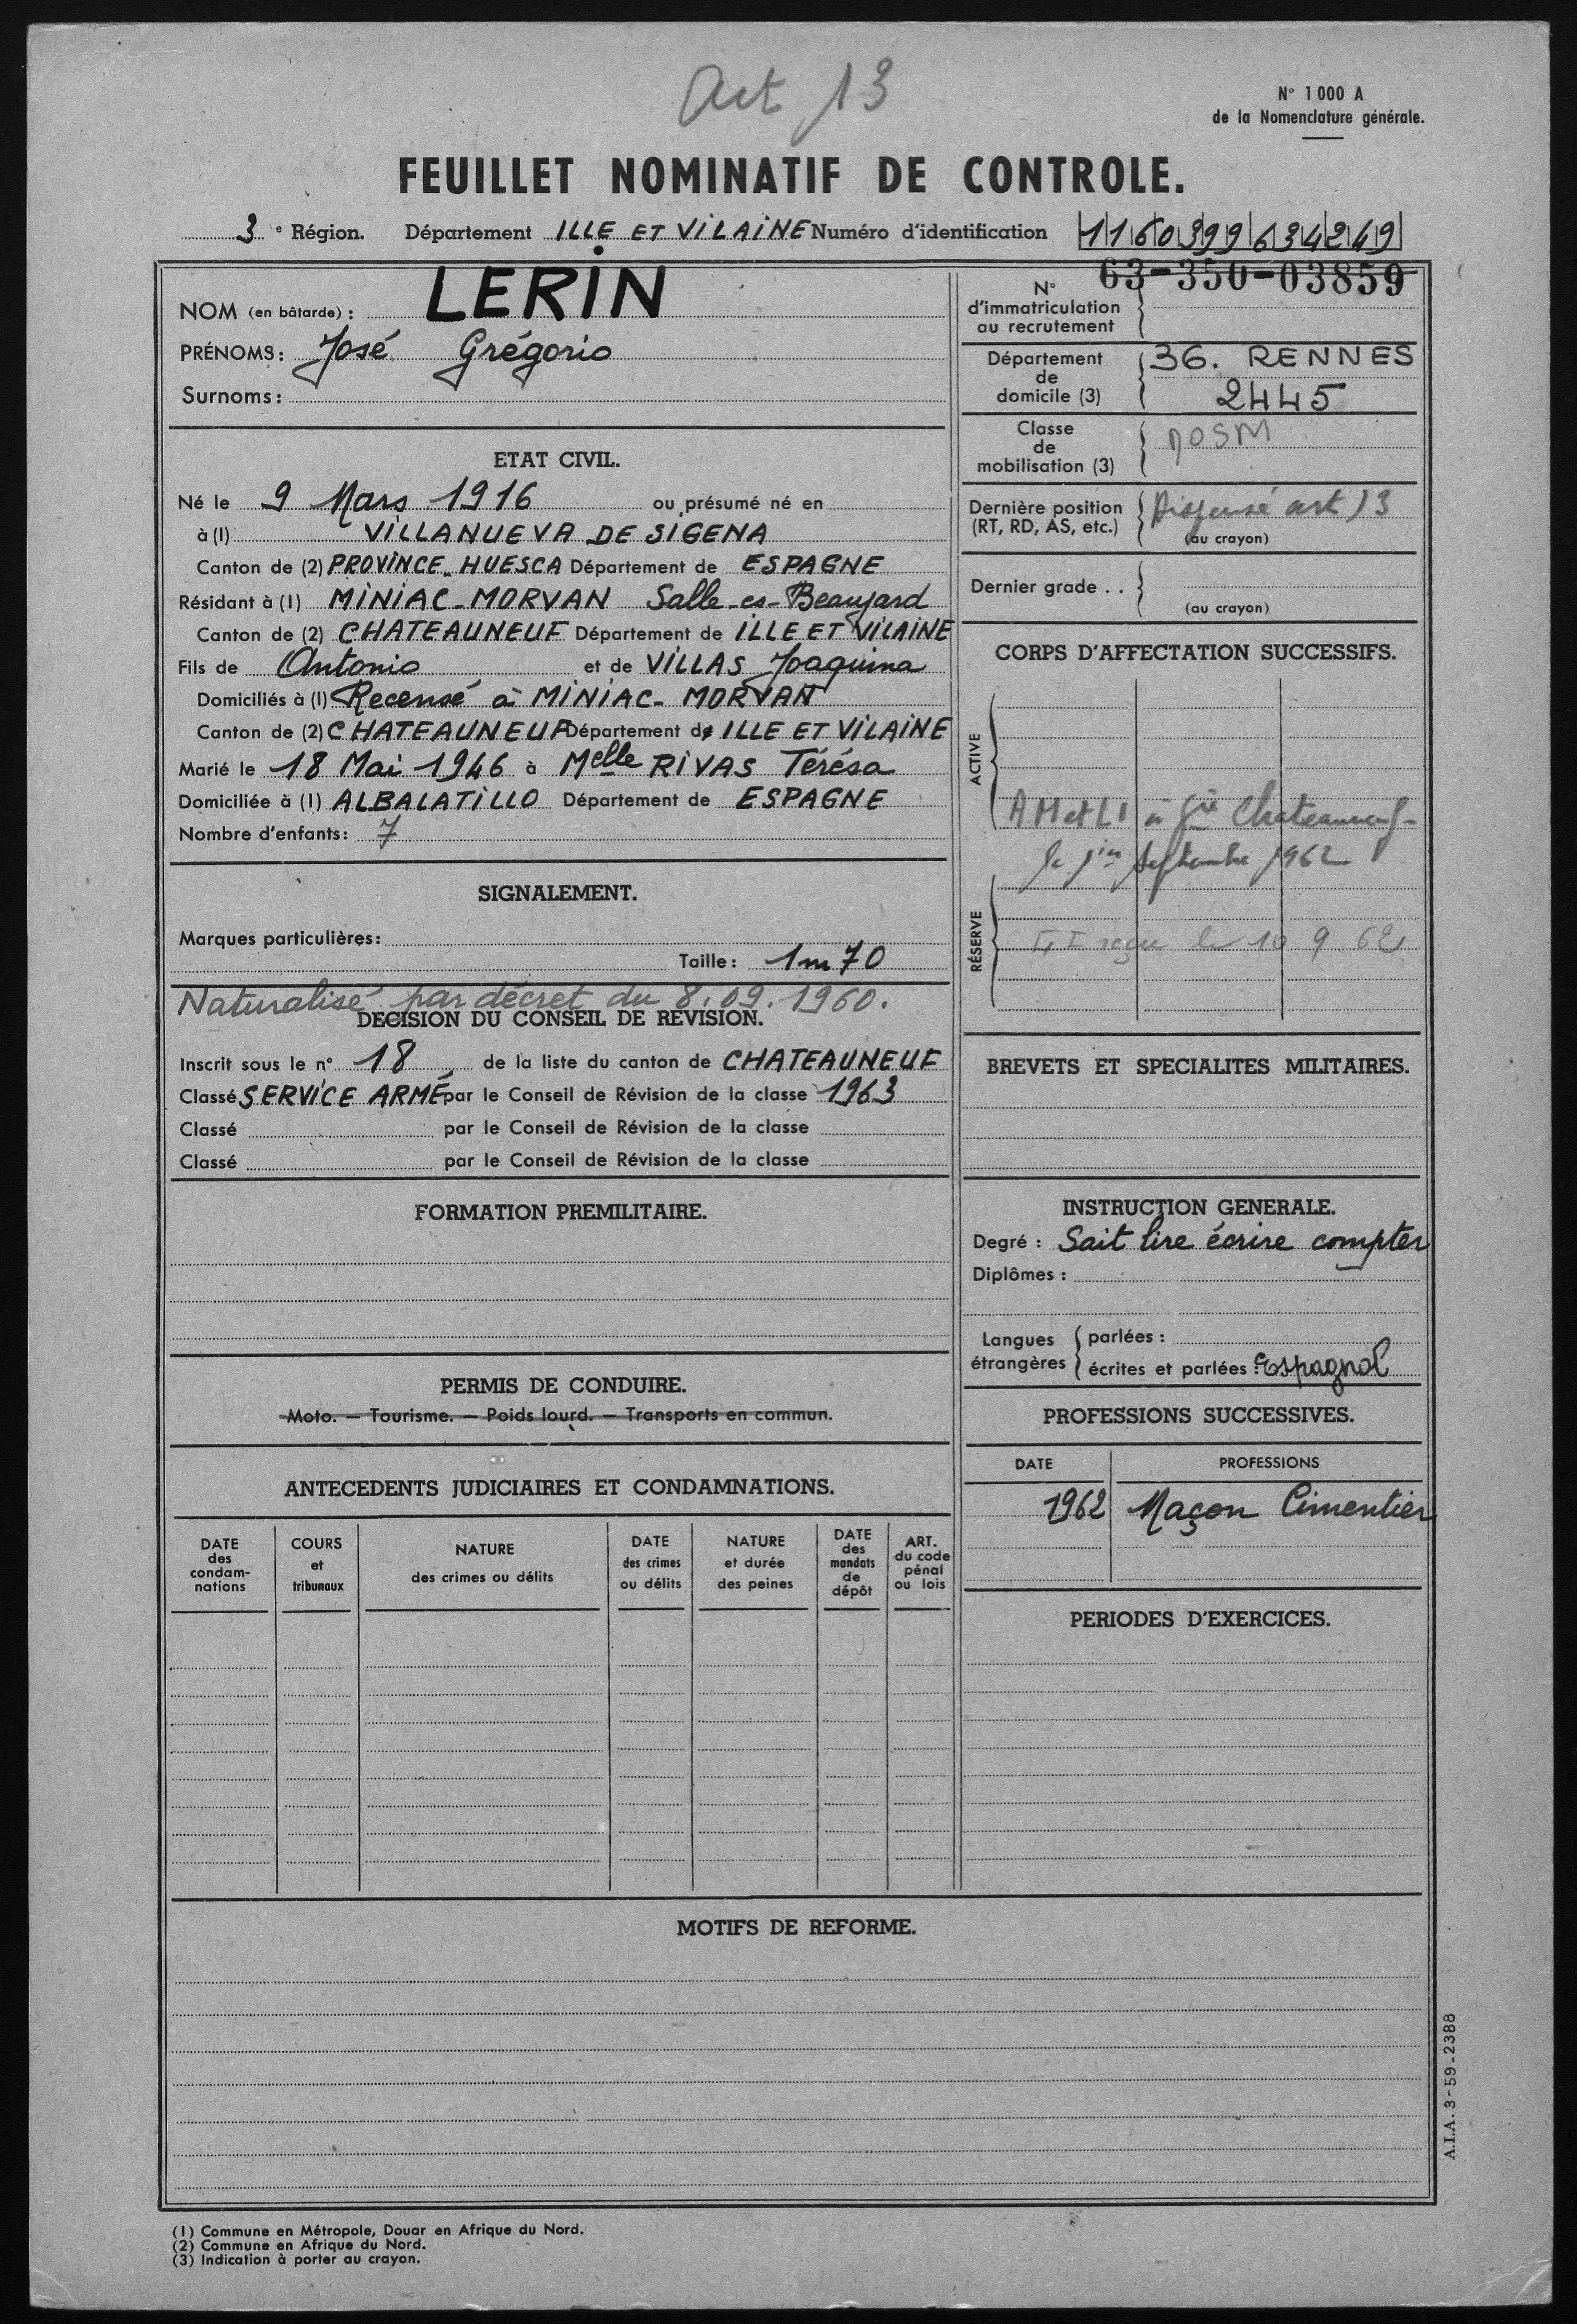 Art 13
N° 1 000 A
de la Nomenclature générale.
FEUILLET NOMINATIF DE CONTROLE.
3 e Région. Département ILLE ET VILAINE Numéro d'identification 1160399634249
63-350-03859
NOM (en bâtarde) : LERIN
PRÉNOMS : José Grégorio
Surnoms :
ETAT CIVIL.
Né le 9 Mars 1916 ou présumé né en
à (1) VILLANUEVA DE SIGENA
Canton de (2) PROVINCE HUESCA Département de ESPAGNE
Résidant à (1) MINIAC-MORVAN Salle-es-Beaujard
Canton de (2) CHATEAUNEUF Département de ILLE ET VILAINE
Fils de Antonio et de VILLAS Joaquina
Domiciliés à (1) Recensé à MINIAC-MORVAN
Canton de (2) CHATEAUNEUF Département de ILLE ET VILAINE
Marié le 18 Mai 1946 à Melle RIVAS Térésa
Domiciliée à (1) ALBALATILLO Département de ESPAGNE
Nombre d'enfants : 7
SIGNALEMENT.
Marques particulières :
Taille : 1m70
Naturalisé par décret du 8.09.1960.
DECISION DU CONSEIL DE REVISION.
Inscrit sous le n° 18 de la liste du canton de CHATEAUNEUF
Classé SERVICE ARMÉ par le Conseil de Révision de la classe 1963
Classé par le Conseil de Révision de la classe
Classé par le Conseil de Révision de la classe
FORMATION PREMILITAIRE.
PERMIS DE CONDUIRE.
Moto. — Tourisme. — Poids lourd. — Transports en commun.
ANTECEDENTS JUDICIAIRES ET CONDAMNATIONS.
DATE des condam-nations
COURS et tribunaux
NATURE des crimes ou délits
DATE des crimes ou délits
NATURE et durée des peines
DATE des mandats de dépôt
ART. du code pénal ou lois
N° d'immatriculation au recrutement
Département de domicile (3) 36. RENNES
2445
Classe de mobilisation (3) DOSM
Dernière position (RT, RD, AS, etc.) Dispensé art 13
(au crayon)
Dernier grade . .
(au crayon)
CORPS D'AFFECTATION SUCCESSIFS.
ACTIVE
à Gie Chateauneuf
le 1er Septembre 1962
RÉSERVE
reçu le 10 9 62
BREVETS ET SPECIALITES MILITAIRES.
INSTRUCTION GENERALE.
Degré : Sait lire écrire compter
Diplômes :
Langues étrangères
parlées :
écrites et parlées : Espagnol
PROFESSIONS SUCCESSIVES.
DATE PROFESSIONS
1962 Maçon Cimentier
PERIODES D'EXERCICES.
MOTIFS DE REFORME.
A.I.A. 3-59-2388
(1) Commune en Métropole, Douar en Afrique du Nord.
(2) Commune en Afrique du Nord.
(3) Indication à porter au crayon.